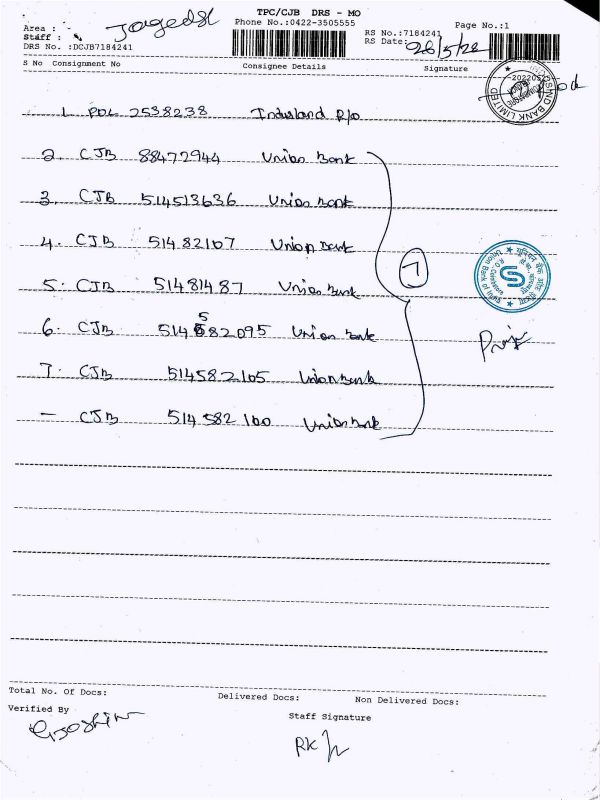 TPC/CJB DRS - MO
Phone No.:0422-3505555
Page No.:1
Area :
Staff :
DRS No. :DCJB7184241
RS No.:7184241
RS Date:
S No Consignment No Consignee Details Signature
1. PDL 2538238
2. CJB 88472944 Union Bank
3. CJB 514513636 Union Bank
4. CJB 51482107 Union Bank
5. CJB 51481487 Union Bank
5
6. CJB 514582095 Union Bank
7. CJB 514582105 Union Bank
— CJB 514582100 Union Bank
7
Total No. Of Docs:
Delivered Docs:
Non Delivered Docs:
Verified By
Staff Signature
RK